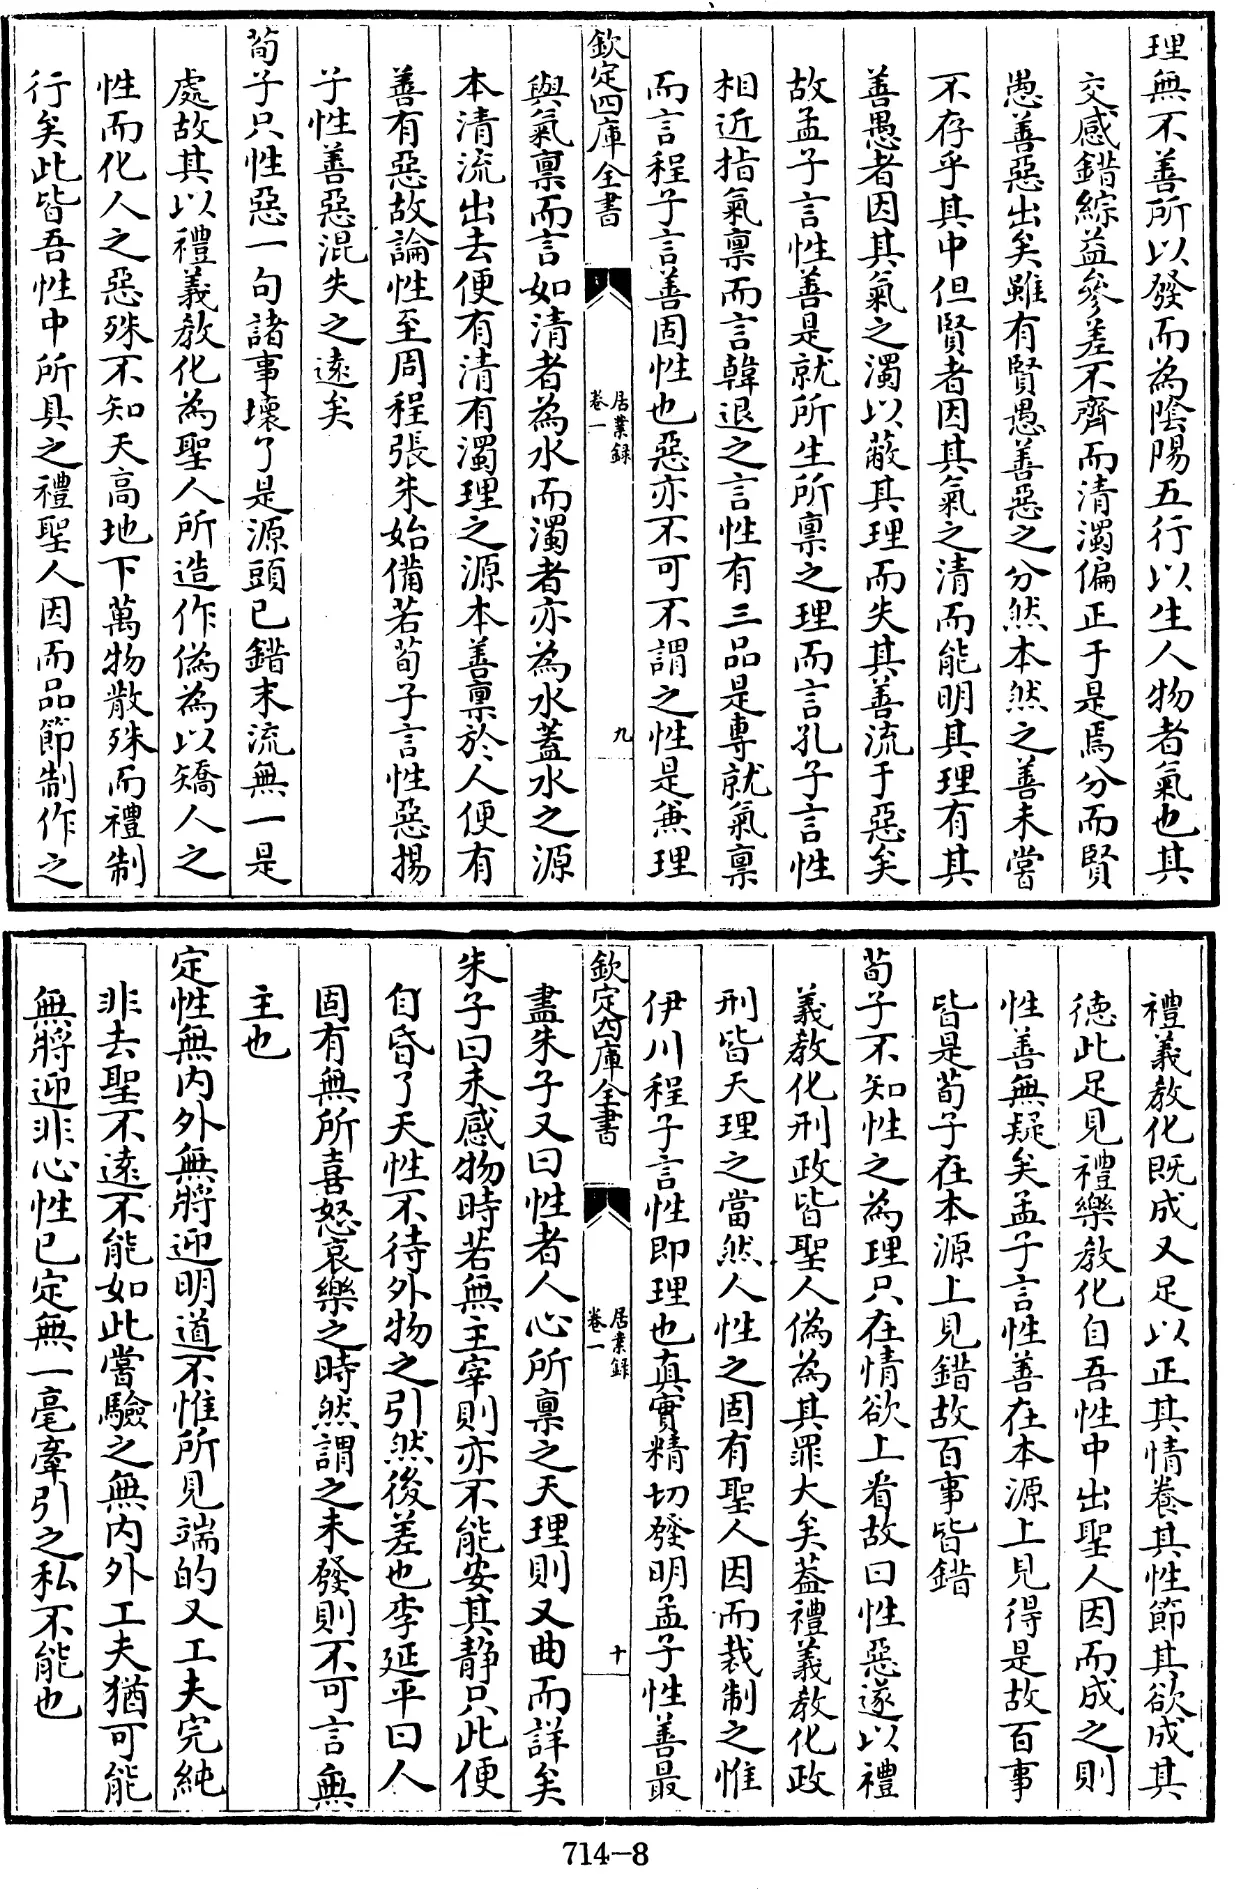 理無不善所以發而為陰陽五行以生人物者氣也其
交感錯綜益參差不齊而清濁偏正于是焉分而賢
愚善惡出矣雖有賢愚善惡之分然本然之善未嘗
不存乎其中但賢者因其氣之清而能明其理有其
善愚者因其氣之濁以蔽其理而失其善流于惡矣
故孟子言性善是就所生所禀之理而言孔子言性
相近指氣禀而言韓退之言性有三品是專就氣禀
而言程子言善固性也惡亦不可不謂之性是兼理
欽定四庫全書
居業録
卷一
九
與氣禀而言如清者為水而濁者亦為水蓋水之源
本清流出去便有清有濁理之源本善禀於人便有
善有惡故論性至周程張朱始備若荀子言性惡揚
子性善惡混失之遠矣
荀子只性惡一句諸事壞了是源頭已錯末流無一是
處故其以禮義教化為聖人所造作偽為以矯人之
性而化人之惡殊不知天高地下萬物散殊而禮制
行矣此皆吾性中所具之禮聖人因而品節制作之
禮義教化既成又足以正其情養其性節其欲成其
德此足見禮樂教化自吾性中出聖人因而成之則
性善無疑矣孟子言性善在本源上見得是故百事
皆是荀子在本源上見錯故百事皆錯
荀子不知性之為理只在情欲上看故曰性惡遂以禮
義教化刑政皆聖人偽為其罪大矣蓋禮義教化政
刑皆天理之當然人性之固有聖人因而裁制之惟
伊川程子言性即理也真實精切發明孟子性善最
欽定四庫全書
居業録
卷一
十
盡朱子又曰性者人心所禀之天理則又曲而詳矣
朱子曰未感物時若無主宰則亦不能安其靜只此便
自昏了天性不待外物之引然後差也李延平曰人
固有無所喜怒哀樂之時然謂之未發則不可言無
主也
定性無内外無將迎明道不惟所見端的又工夫完純
非去聖不遠不能如此嘗驗之無内外工夫猶可能
無將迎非心性已定無一毫牽引之私不能也
714-8